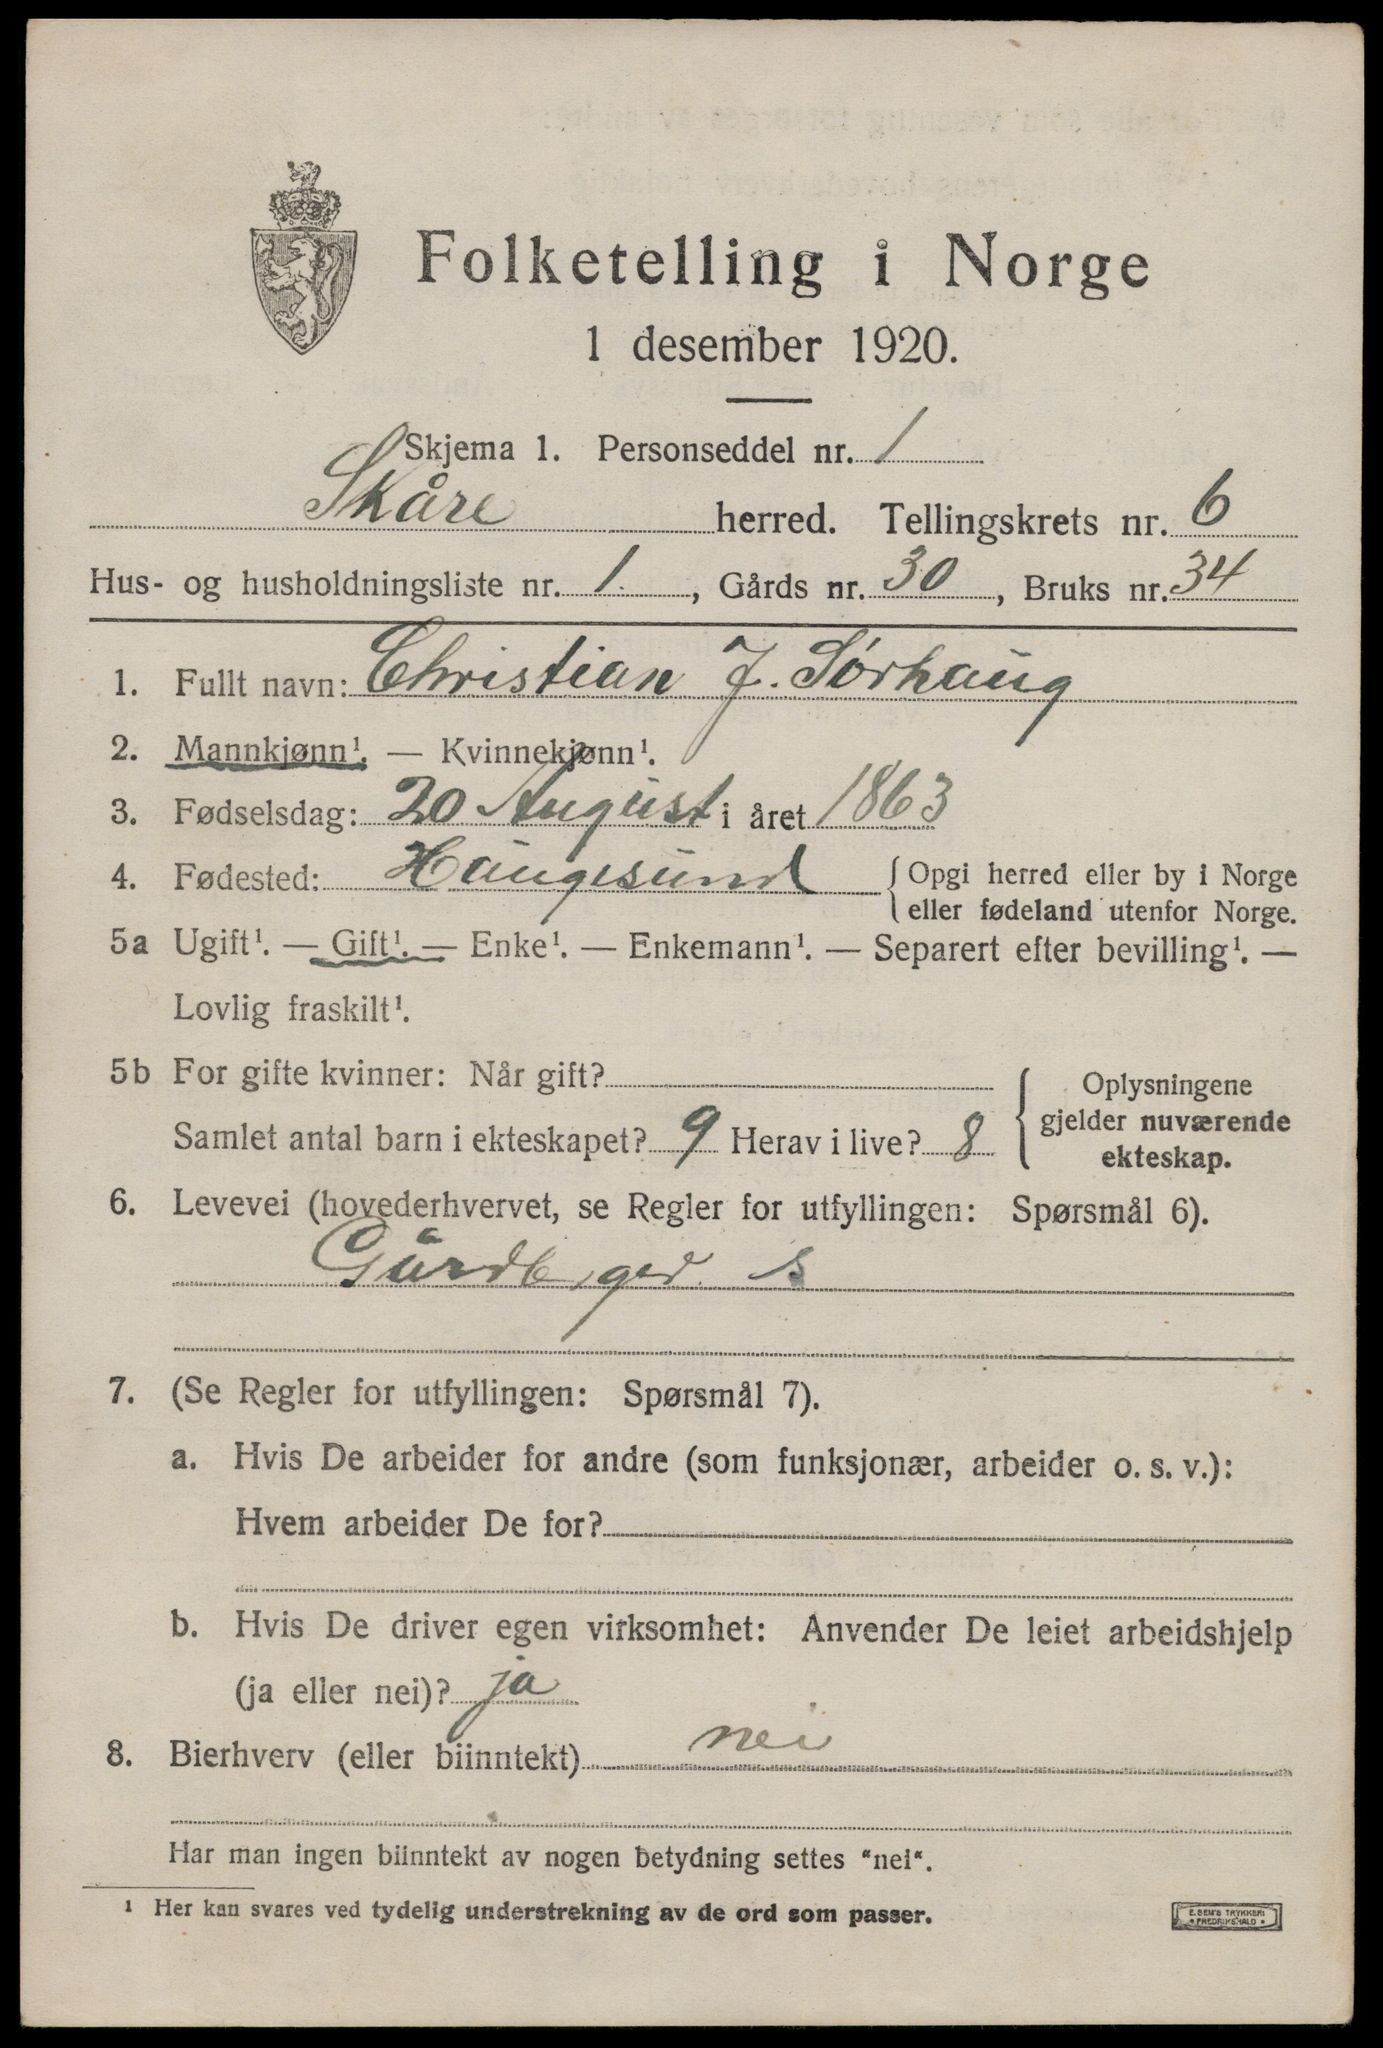 Folketelling i Norge
1 desember 1920.
Skjema 1. Personseddel nr. 1
Skåre herred. Tellingskrets nr. 6
Hus- og husholdningsliste nr. 1., Gårds nr. 30, Bruks nr. 34
1. Fullt navn: Christian J. Sørhaug
2. Mannkjønn¹. — Kvinnekjønn¹.
3. Fødselsdag: 20 August i året 1863
4. Fødested: Haugesund { Opgi herred eller by i Norge
eller fødeland utenfor Norge.
5a Ugift¹. — Gift¹. — Enke¹. — Enkemann¹. — Separert efter bevilling¹. —
Lovlig fraskilt¹.
5b For gifte kvinner: Når gift?
Samlet antal barn i ekteskapet? 9 Herav i live? 8
{ Oplysningene
gjelder nuværende
ekteskap.
6. Levevei (hovederhvervet, se Regler for utfyllingen: Spørsmål 6).
Gårdb,
7. (Se Regler for utfyllingen: Spørsmål 7).
a. Hvis De arbeider for andre (som funksjonær, arbeider o. s. v.):
Hvem arbeider De for?
b. Hvis De driver egen virksomhet: Anvender De leiet arbeidshjelp
(ja eller nei)? ja
8. Bierhverv (eller biinntekt) nei
Har man ingen biinntekt av nogen betydning settes "nei".
¹ Her kan svares ved tydelig understrekning av de ord som passer.
E. SEM'S TRYKKERI
• FREDRIKSHALD •